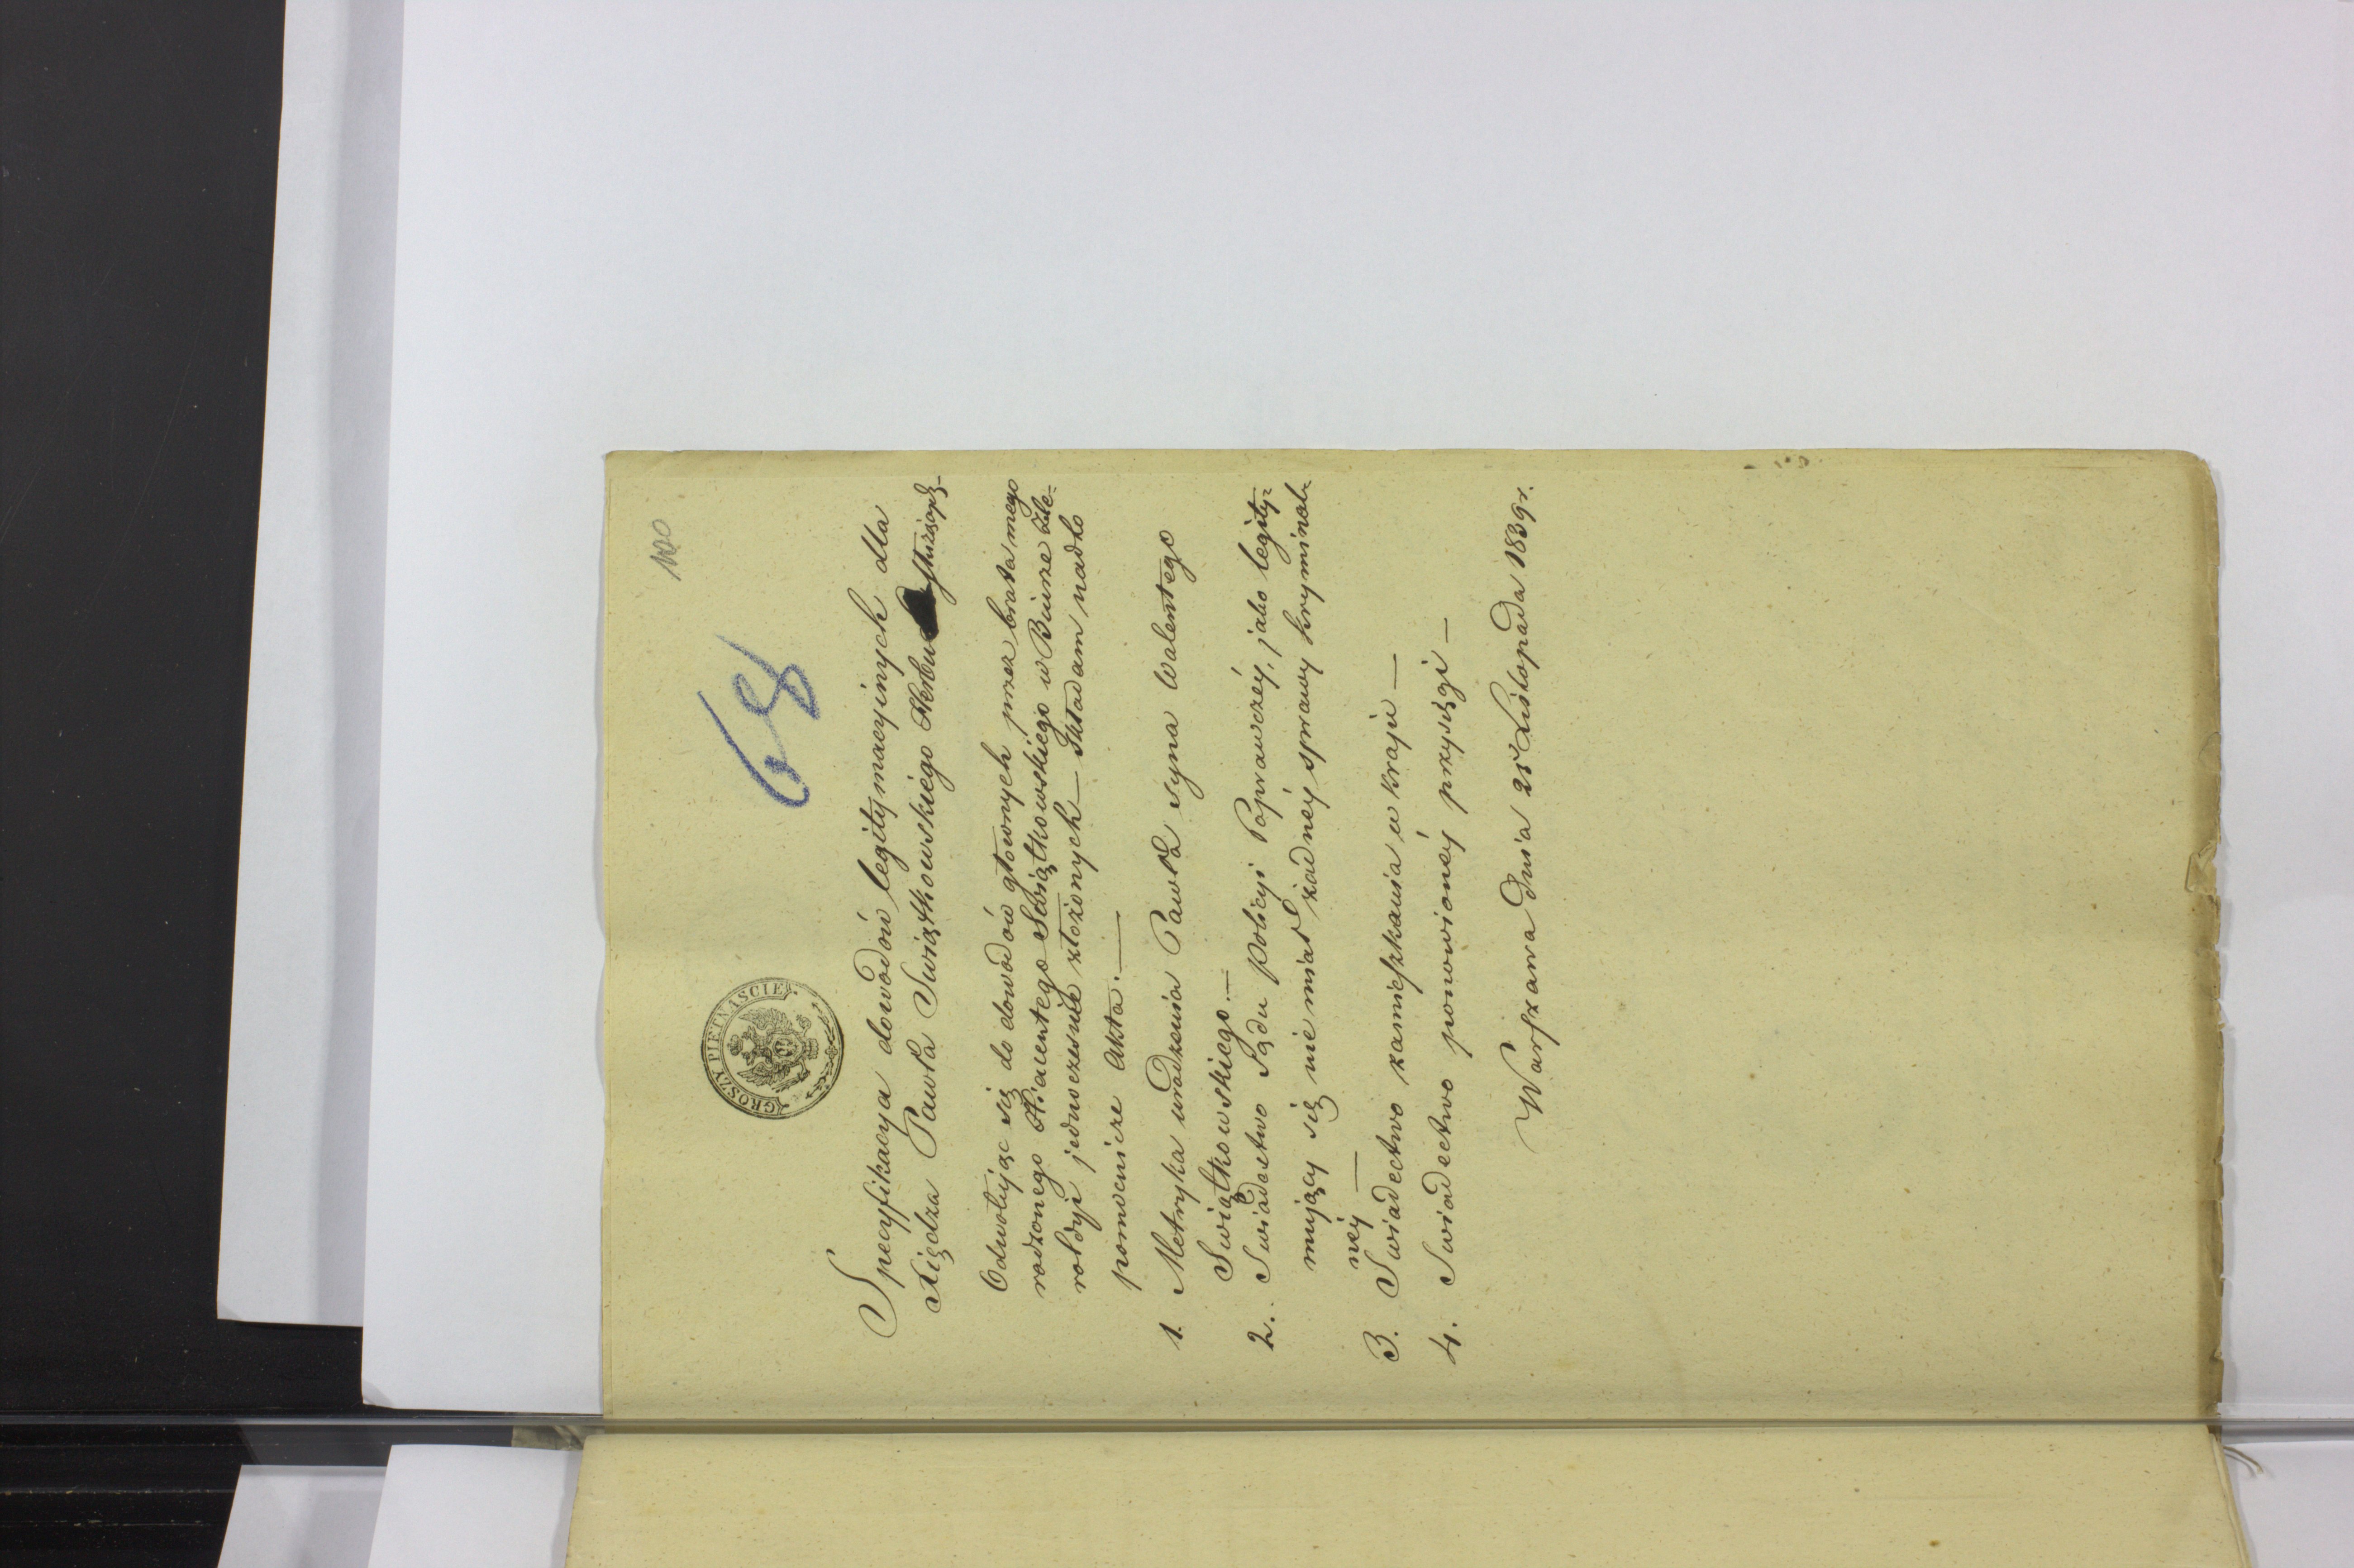 100
68
GROSZY PIETNAŚCIE
Specyfikacya dowodów legitymacyinych dla
Xiędza Pawła Swiątkowskiego Herbu
Odwołuiąc się do dowodów głownych przez brata mego
rodzonego Hiacentego Swiątkowskiego w Biurze He=
roldyi jednocześnie złożonych — Składam nadto
pomocnicze Akta. —
1. Metryka urodzenia Pawła syna Walentego
Swiątkowskiego. —
2. Swiadectwo Sądu Policyi Poprawczéy, jako legity=
muiący się nie miał żadnéy sprawy kryminal=
néy —
3. Swiadectwo zamieszkania w kraju —
4. Swiadectwo ponowionéy przysięgi —
Warszawa Dnia 25 Listopada 1839 r.